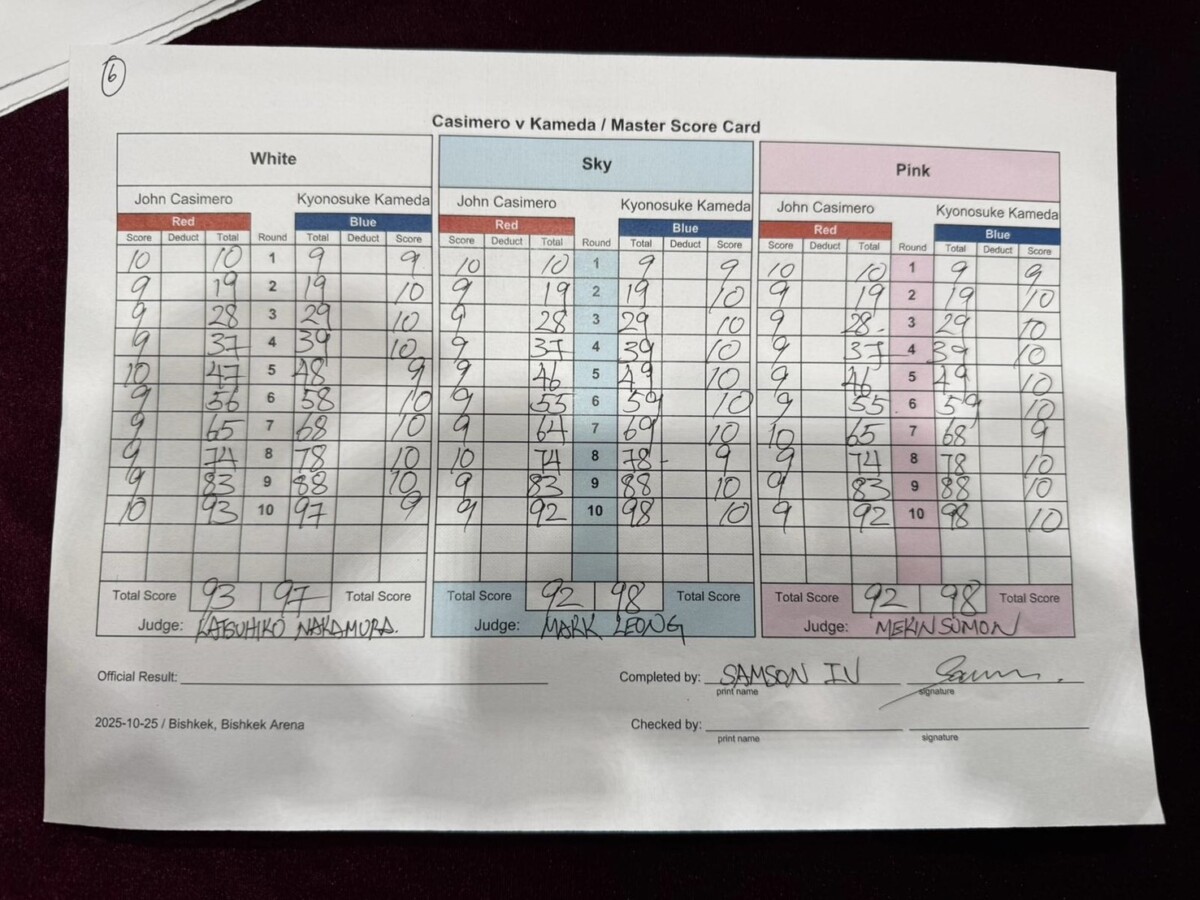 6
Casimero v Kameda / Master Score Card
White Sky Pink
John Casimero Kyonosuke Kameda John Casimero Kyonosuke Kameda John Casimero Kyonosuke Kameda
Red Blue Red Blue Red Blue
Score Deduct Total Round Total Deduct Score Score Deduct Total Round Total Deduct Score Score Deduct Total Round Total Deduct Score
10 10 1 9 9 10 10 1 9 9 10 10 1 9 9
9 19 2 19 10 9 19 2 19 10 9 19 2 19 10
9 28 3 29 10 9 28 3 29 10 9 28 3 29 10
9 37 4 39 10 9 37 4 39 10 9 37 4 39 10
10 47 5 48 9 9 46 5 49 10 9 46 5 49 10
9 56 6 58 10 9 55 6 59 10 9 55 6 59 10
9 65 7 68 10 9 64 7 69 10 10 65 7 68 9
9 74 8 78 10 10 74 8 78 9 9 74 8 78 10
9 83 9 88 10 9 83 9 88 10 9 83 9 88 10
10 93 10 97 9 9 92 10 98 10 9 92 10 98 10
Total Score 93 97 Total Score Total Score 92 98 Total Score Total Score 92 98 Total Score
Judge: KATSUHIKO NAKAMURA. Judge: MARK LEONG Judge: MEKIN SUMON
Official Result: Completed by: SAMSON IV
print name signature
2025-10-25 / Bishkek, Bishkek Arena Checked by:
print name signature